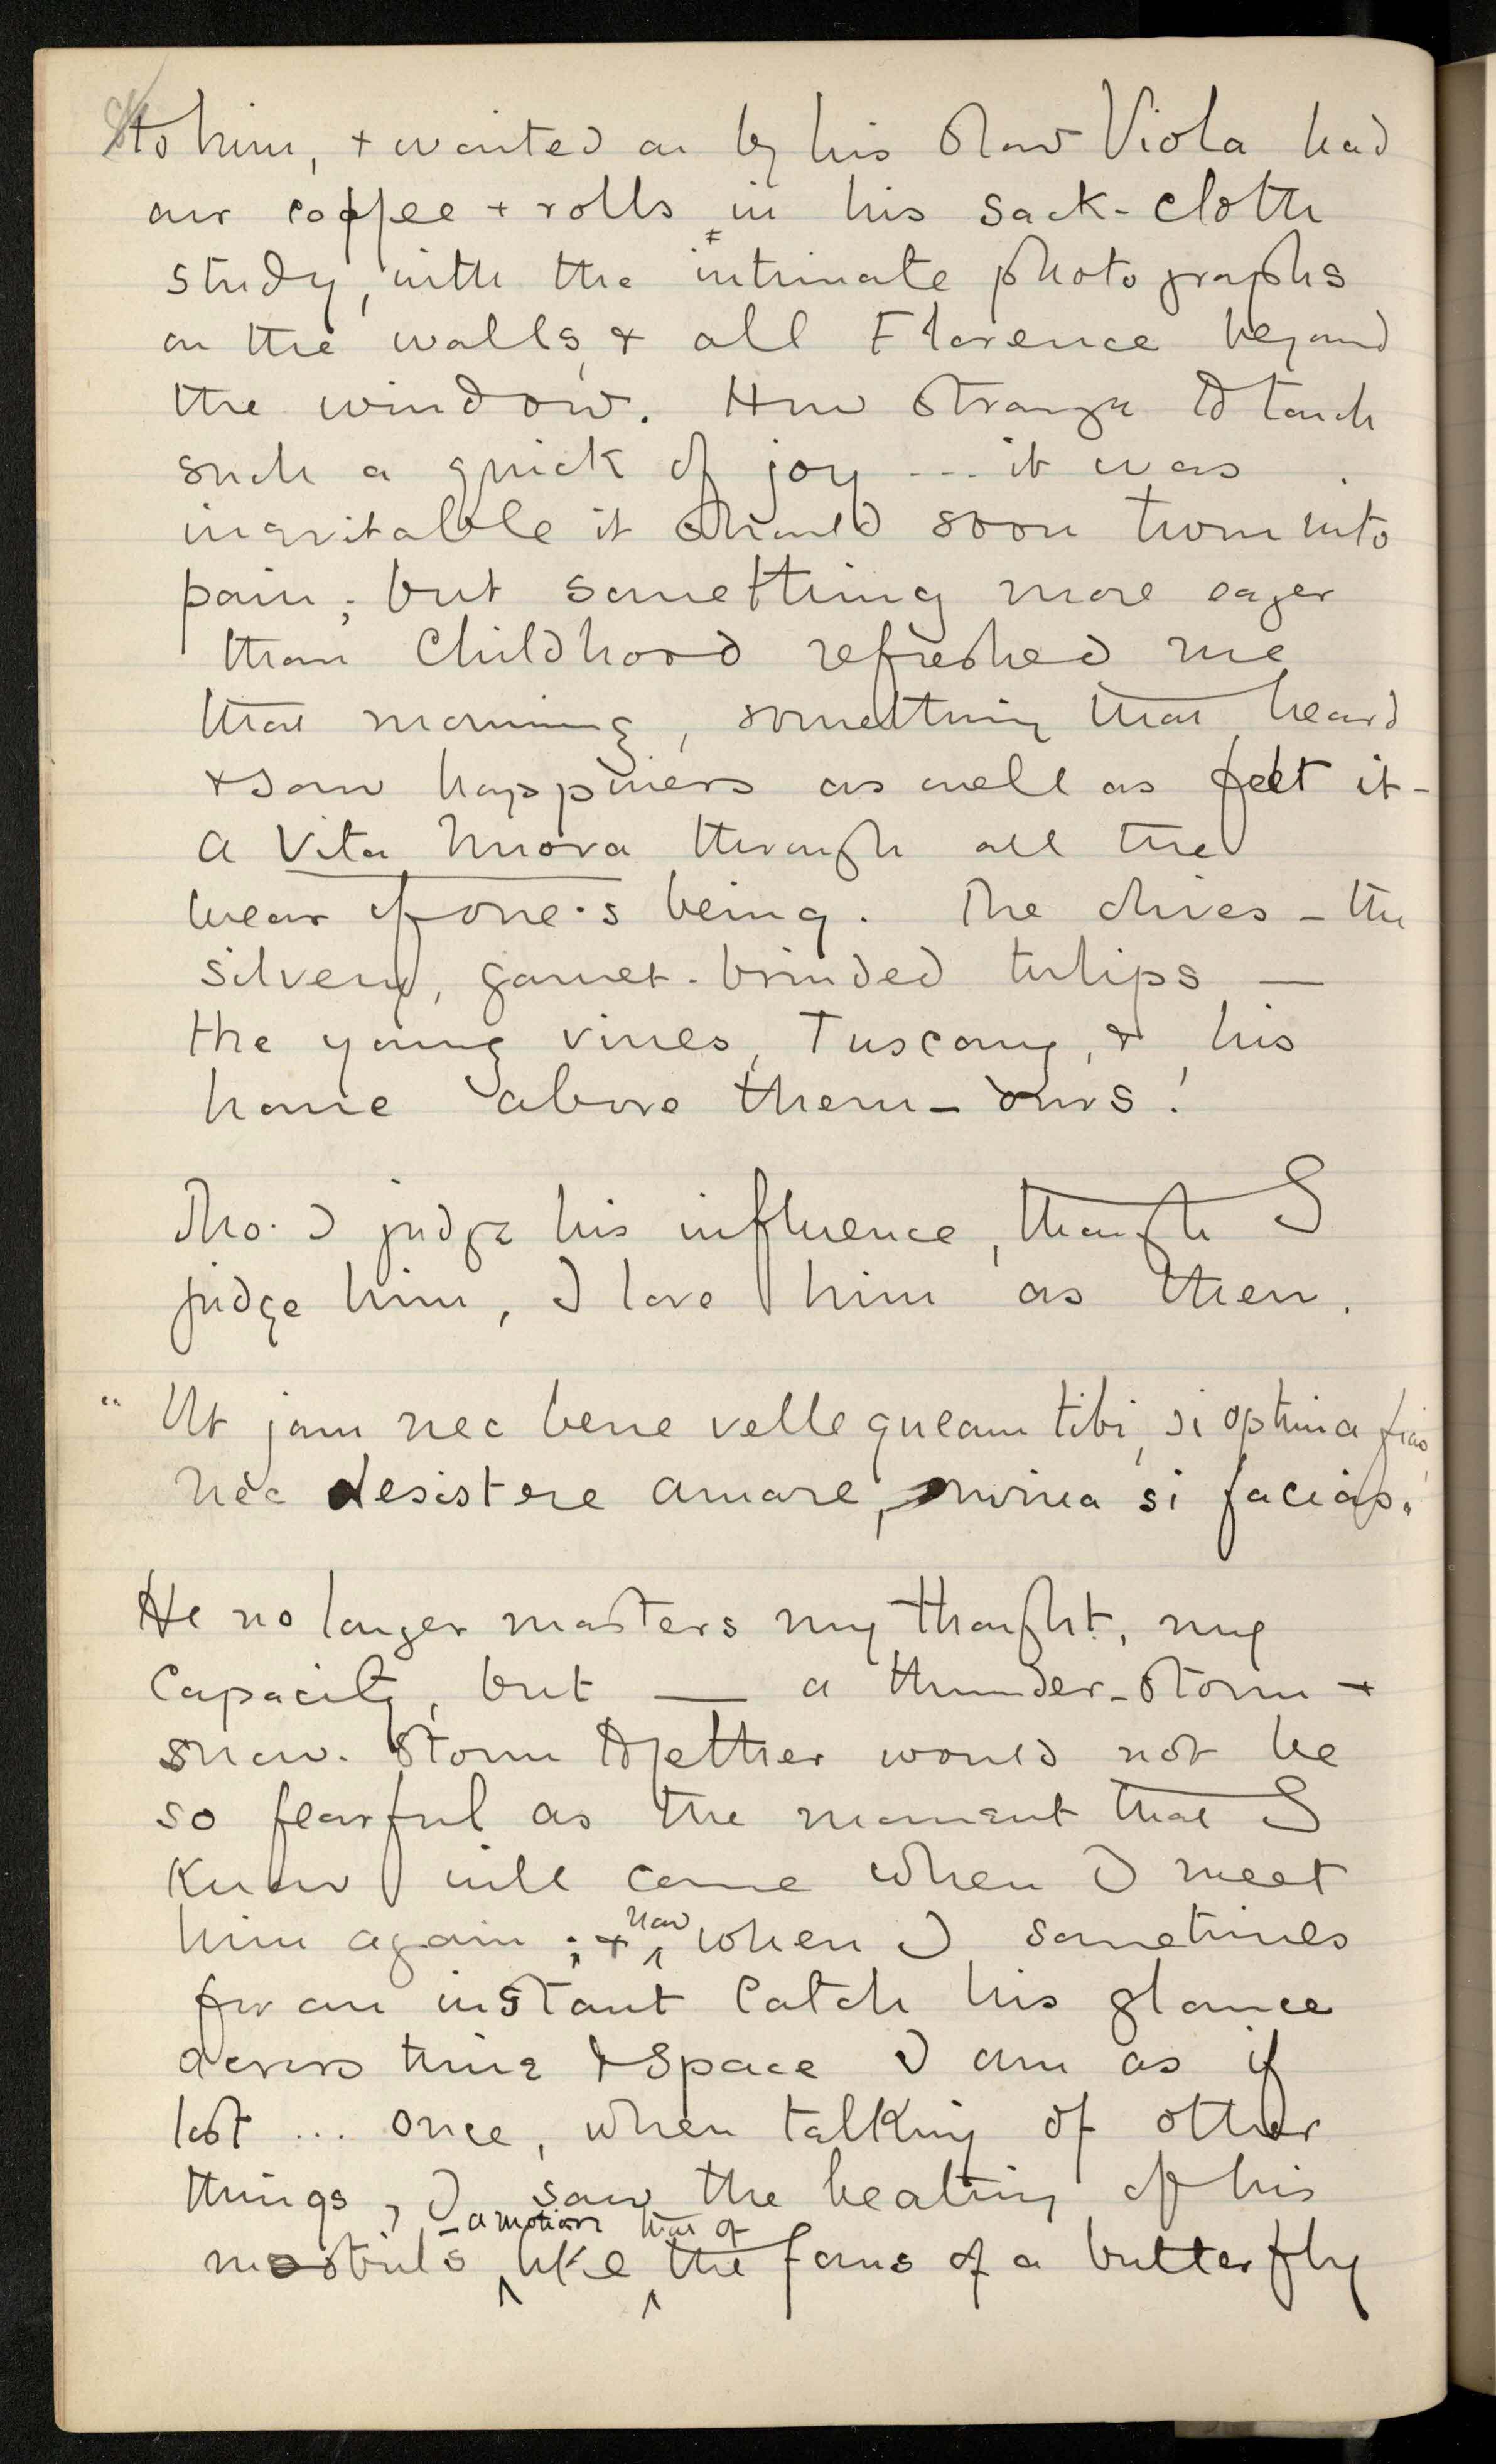 to him, + waited on by his slow Viola had
our coffee + rolls in his sack-cloth
study, with the intimate photographs
on the walls, + all Florence beyond
the window. How strange to touch
such a quick of joy --- it was
inevitable it should soon turn into
pain; but something more eager
than Childhood refreshed me
that morning, something that heard
+ saw happiness as well as felt it -
a Vita Nuova through all the
wear of one's being. The olives – the
silvery, garnet-brinded tulips —
the young vines, Tuscany, + his
home above them – ours!
Tho. I judge his influence, though I
judge him, I love him as then.
"Ut jam nec bene velle queam tibi, si optima fias,
nec desistere amare, omnia si facias.
He no longer masters my thought, my
Capacity, but — a thunder-storm +
snow-storm together would not be
so fearful as the moment that I
know will come when I meet
him again; + now when I sometimes
for an instant catch his glance
across time + space I am as if
lost ... once, when talking of other
things, I saw the beating of his
nostrils – a motion like that of the fans of a butterfly